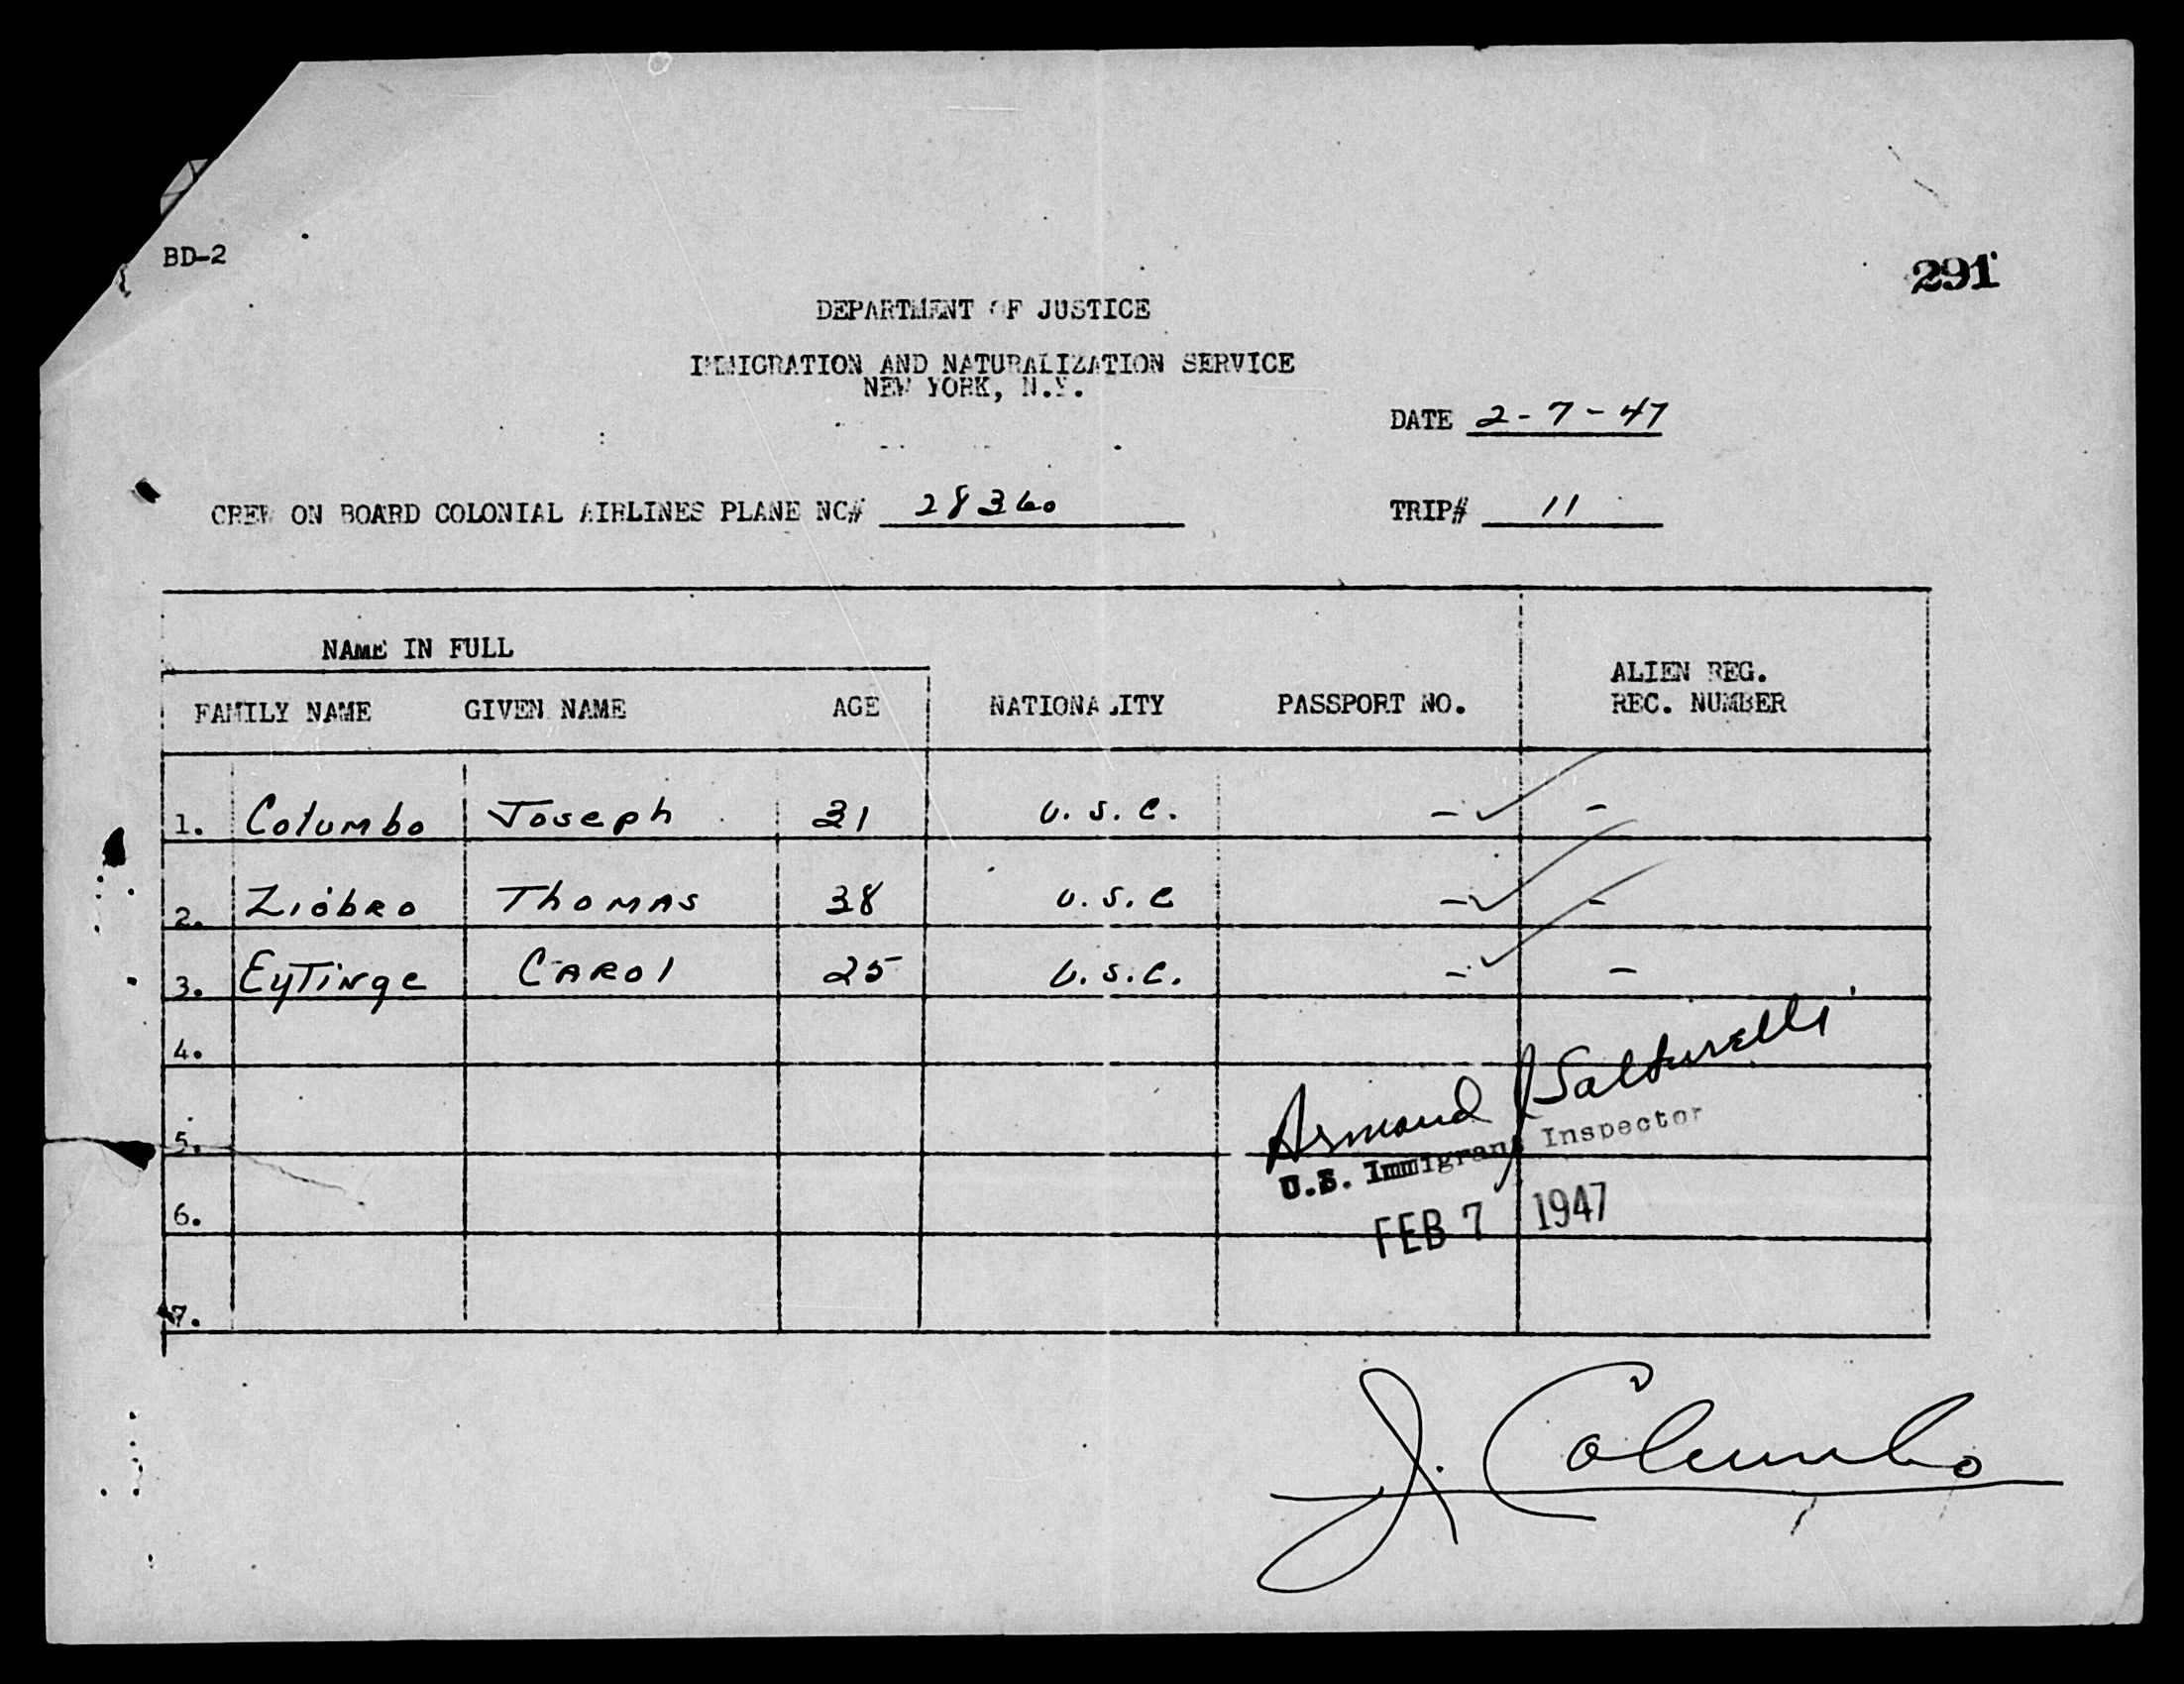 BD-2
291
DEPARTMENT OF JUSTICE
IMMIGRATION AND NATURALIZATION SERVICE
NEW YORK, N.Y.
DATE 2-7-47
CREW ON BOARD COLONIAL AIRLINES PLANE NC# 28360 TRIP# 11
NAME IN FULL
FAMILY NAME GIVEN NAME AGE NATIONALITY PASSPORT NO. ALIEN REG. REC. NUMBER
1. Columbo Joseph 31 U.S.C. - -
2. Ziobro Thomas 38 U.S.C - -
3. Eytinge Carol 25 U.S.C. - -
4.
Armand J
5.
U.S. Immigrant Inspector
6.
FEB 7 1947
7.
J. Columbo